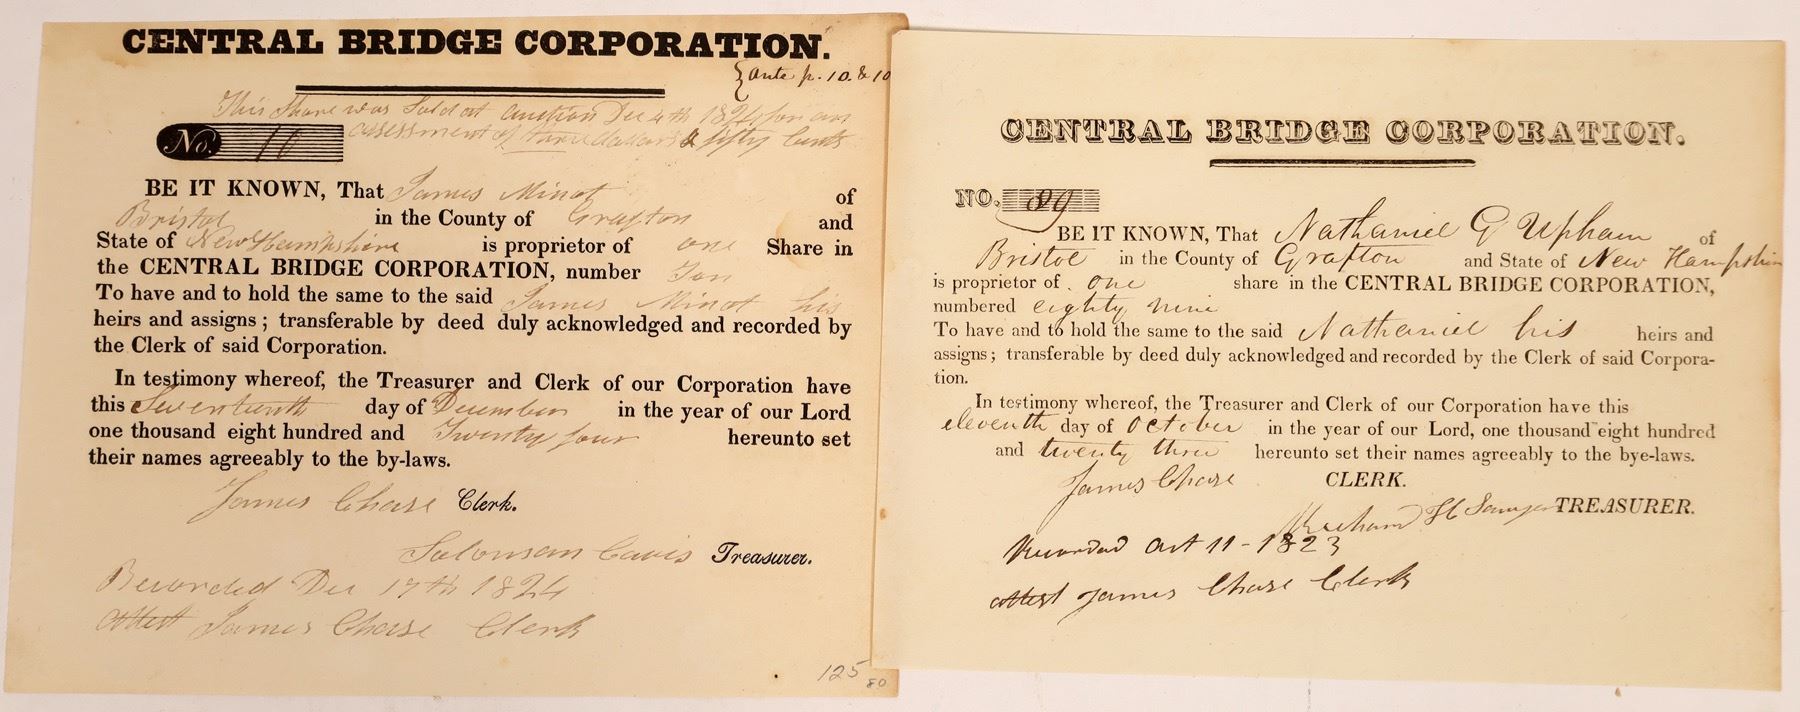 CENTRAL BRIDGE CORPORATION.
{ante p. 10 & 10
This Share was Sold at auction Dec 4th 1824 for an
assessment of three dollars & fifty Cents
No. 10
BE IT KNOWN, That James Minot of
Bristol in the County of Grafton and
State of New Hampshire is proprietor of one Share in
the CENTRAL BRIDGE CORPORATION, number Ten
To have and to hold the same to the said James Minot his
heirs and assigns; transferable by deed duly acknowledged and recorded by
the Clerk of said Corporation.
In testimony whereof, the Treasurer and Clerk of our Corporation have
this Seventeenth day of December in the year of our Lord
one thousand eight hundred and Twenty four hereunto set
their names agreeably to the by-laws.
James Chase Clerk.
Solomon Cavis Treasurer.
Recorded Dec 17th 1824
Attest James Chase Clerk
125
80
CENTRAL BRIDGE CORPORATION.
NO. 89
BE IT KNOWN, That Nathaniel G Upham of
Bristol in the County of Grafton and State of New Hampshire
is proprietor of one share in the CENTRAL BRIDGE CORPORATION,
numbered eighty nine
To have and to hold the same to the said Nathaniel his heirs and
assigns; transferable by deed duly acknowledged and recorded by the Clerk of said Corpora-
tion.
In testimony whereof, the Treasurer and Clerk of our Corporation have this
eleventh day of October in the year of our Lord, one thousand eight hundred
and twenty three hereunto set their names agreeably to the bye-laws.
James Chase CLERK.
Sawyer TREASURER.
Recorded Oct 11 - 1823
Attest James Chase Clerk